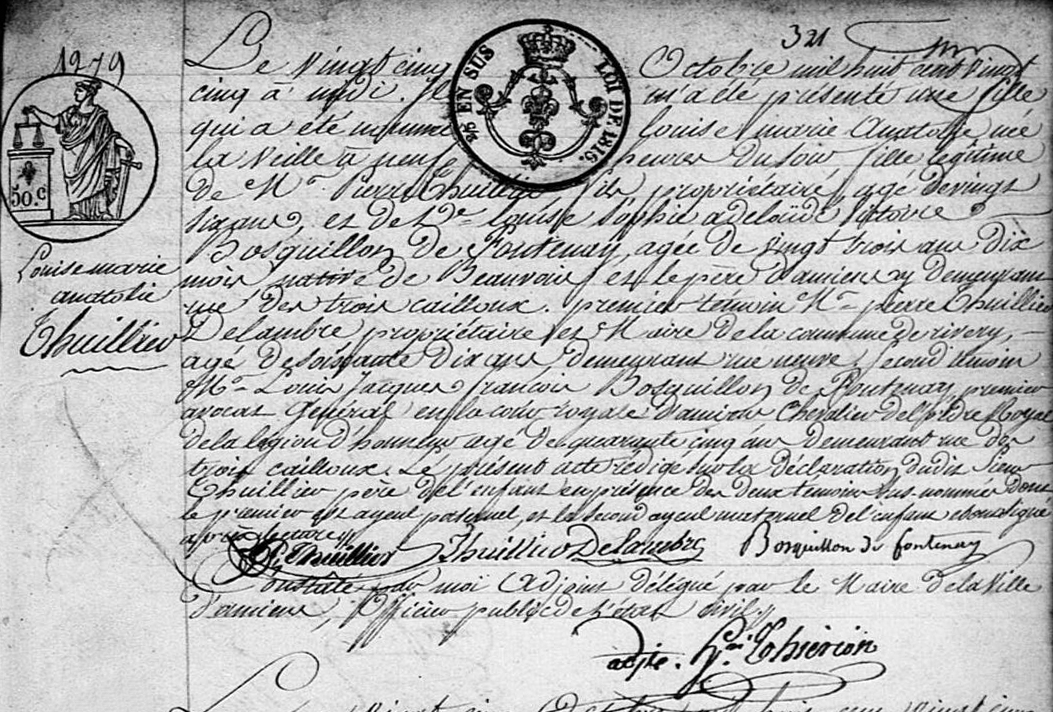 321
1279
Le Vingt cinq Octobre mil huit cent vingt
cinq à midi. Il m'a été présenté une fille
qui a été nommée Louise marie Anatolie née
la veille à neuf heures du soir fille légitime
de Mr. Pierre Thuillier fils propriétaire, agé de vingt
six ans, et de De. Louise Sophie adelaïde Victoire
Bosquillon de Fontenay, agée de vingt trois ans dix
mois native de Beauvais, et le père d'amiens y demeurans
rue des trois cailloux. premier temoin Mr. pierre Thuillier
Delambre propriétaire et Maire de la commune de rivery,
agé de soixante dix ans demeurant rue neuve, second témoin
Mr. Louis Jacques françois Bosquillon de Fontenay premier
avocat général en la cour royale d'amiens Chevalier de l'ordre Royal
de la légion d'honneur agé de quarante cinq ans demeurant rue des
trois cailloux. Le présent acte rédigé sur la déclaration dudit Sieur
Thuillier père de l'enfant en présence des deux temoins sus-nommés dont
le premier est ayeul paternel, et le second ayeul maternel de l'enfant et ont signé
après lecture
P. Thuillier Thuillier Delambre Bosquillon de fontenay
Constaté par moi Adjoint délégué par le Maire de la Ville
d'amiens, Officier public de l'état civil
adjt. Thierion
Louise marie
anatolie
Thuillier
50. C
EN SUS LOI DE 1816.